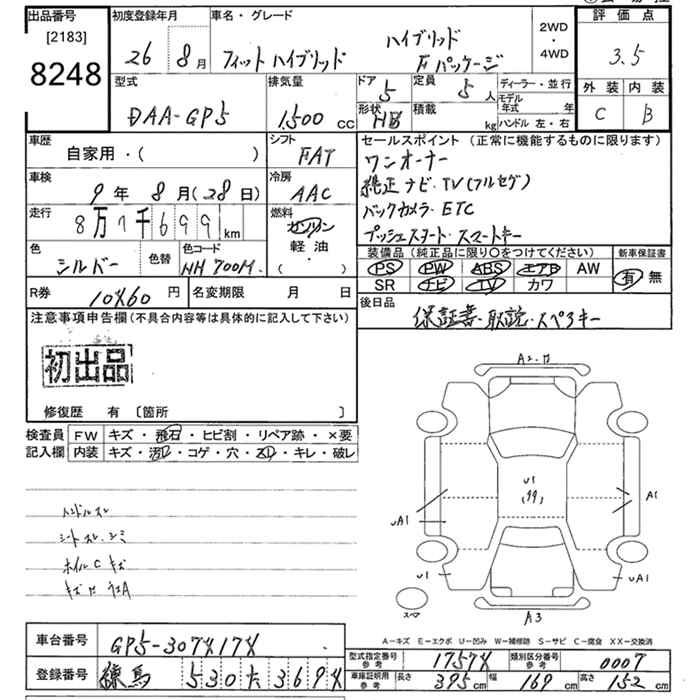 出品番号 初度登録年月 車名・グレード 2WD・4WD 評価点
[2183]
8248 26 8月 フィットハイブリッド ハイブリッド Fパッケージ 3.5
型式 排気量 ドア 5 定員 5人 ディーラー・並行 外装 内装
DAA-GP5 1,500 cc 形状 HB 積載 kg モデル年式 年 C B
ハンドル 左・右
車歴 シフト セールスポイント(正常に機能するものに限ります)
自家用・( ) FAT ワンオーナー
車検 冷房 純正ナビ・TV(フルセグ)
9年 8月(28日) AAC バックカメラ・ETC
走行 8万7千699km 燃料 ガソリン プッシュスタート・スマートキー
軽油
・( )
色 シルバー 色替 色コード NH700M 装備品(純正品に限り○をつけてください) 新車保証書
PS PW ABS エアB AW 有 無
SR ナビ TV カワ
R券 円 名変期限 月 日 後日品
保証書・取説・スペアキー
注意事項申告欄(不具合内容等は具体的に記入して下さい)
初出品
修復歴 有 [箇所 ]
検査員 FW キズ・飛石・ヒビ割・リペア跡・×要
記入欄 内装 キズ・汚レ・コゲ・穴・スレ・キレ・破レ
ハンドルスレ
シートスレ・シミ
ホイルCキズ
A1
U1
uA1 A1
U1 uA1
スペア
A3
A−キズ E−エクボ U−凹み W−補修跡 S−サビ C−腐食 XX−交換済
車台番号 GP5-307X17X
型式指定番号 参考 1757X 類別区分番号 参考 0007
登録番号 練馬 530 た 369X
車庫証明用 参考 長さ 395cm 幅 169cm 高さ 152cm